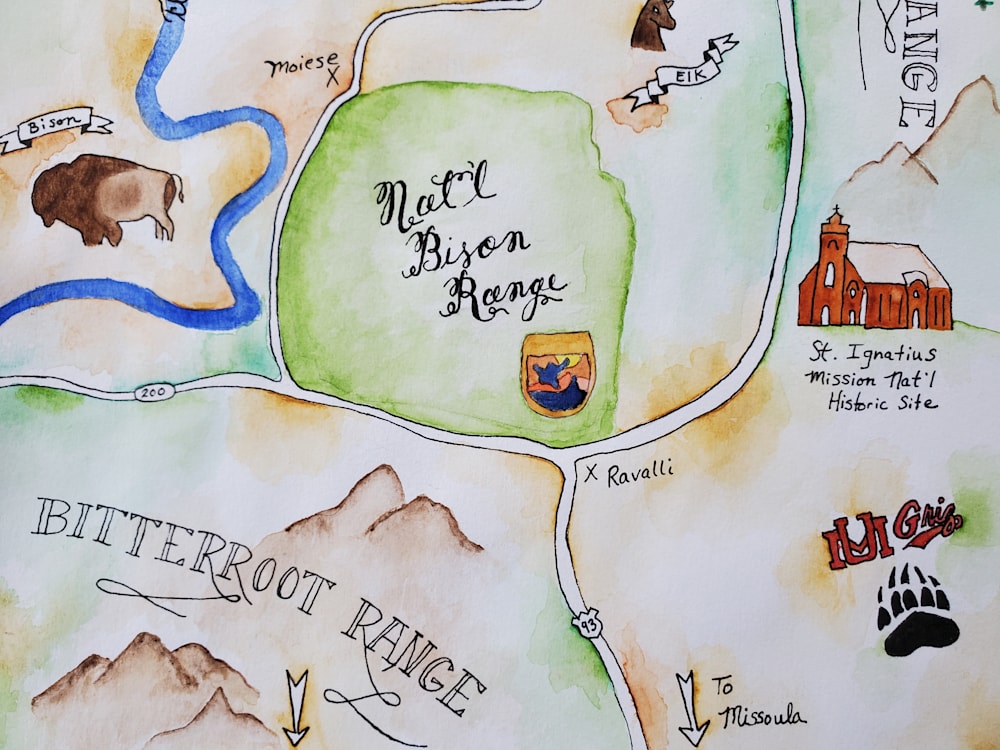 Moiese
X
Elk
ANGE
Bison
Nat'l
Bison
Range
St. Ignatius
Mission Nat'l
Historic Site
200
X Ravalli
BITTERROOT RANGE
UM Griz
93
To
Missoula